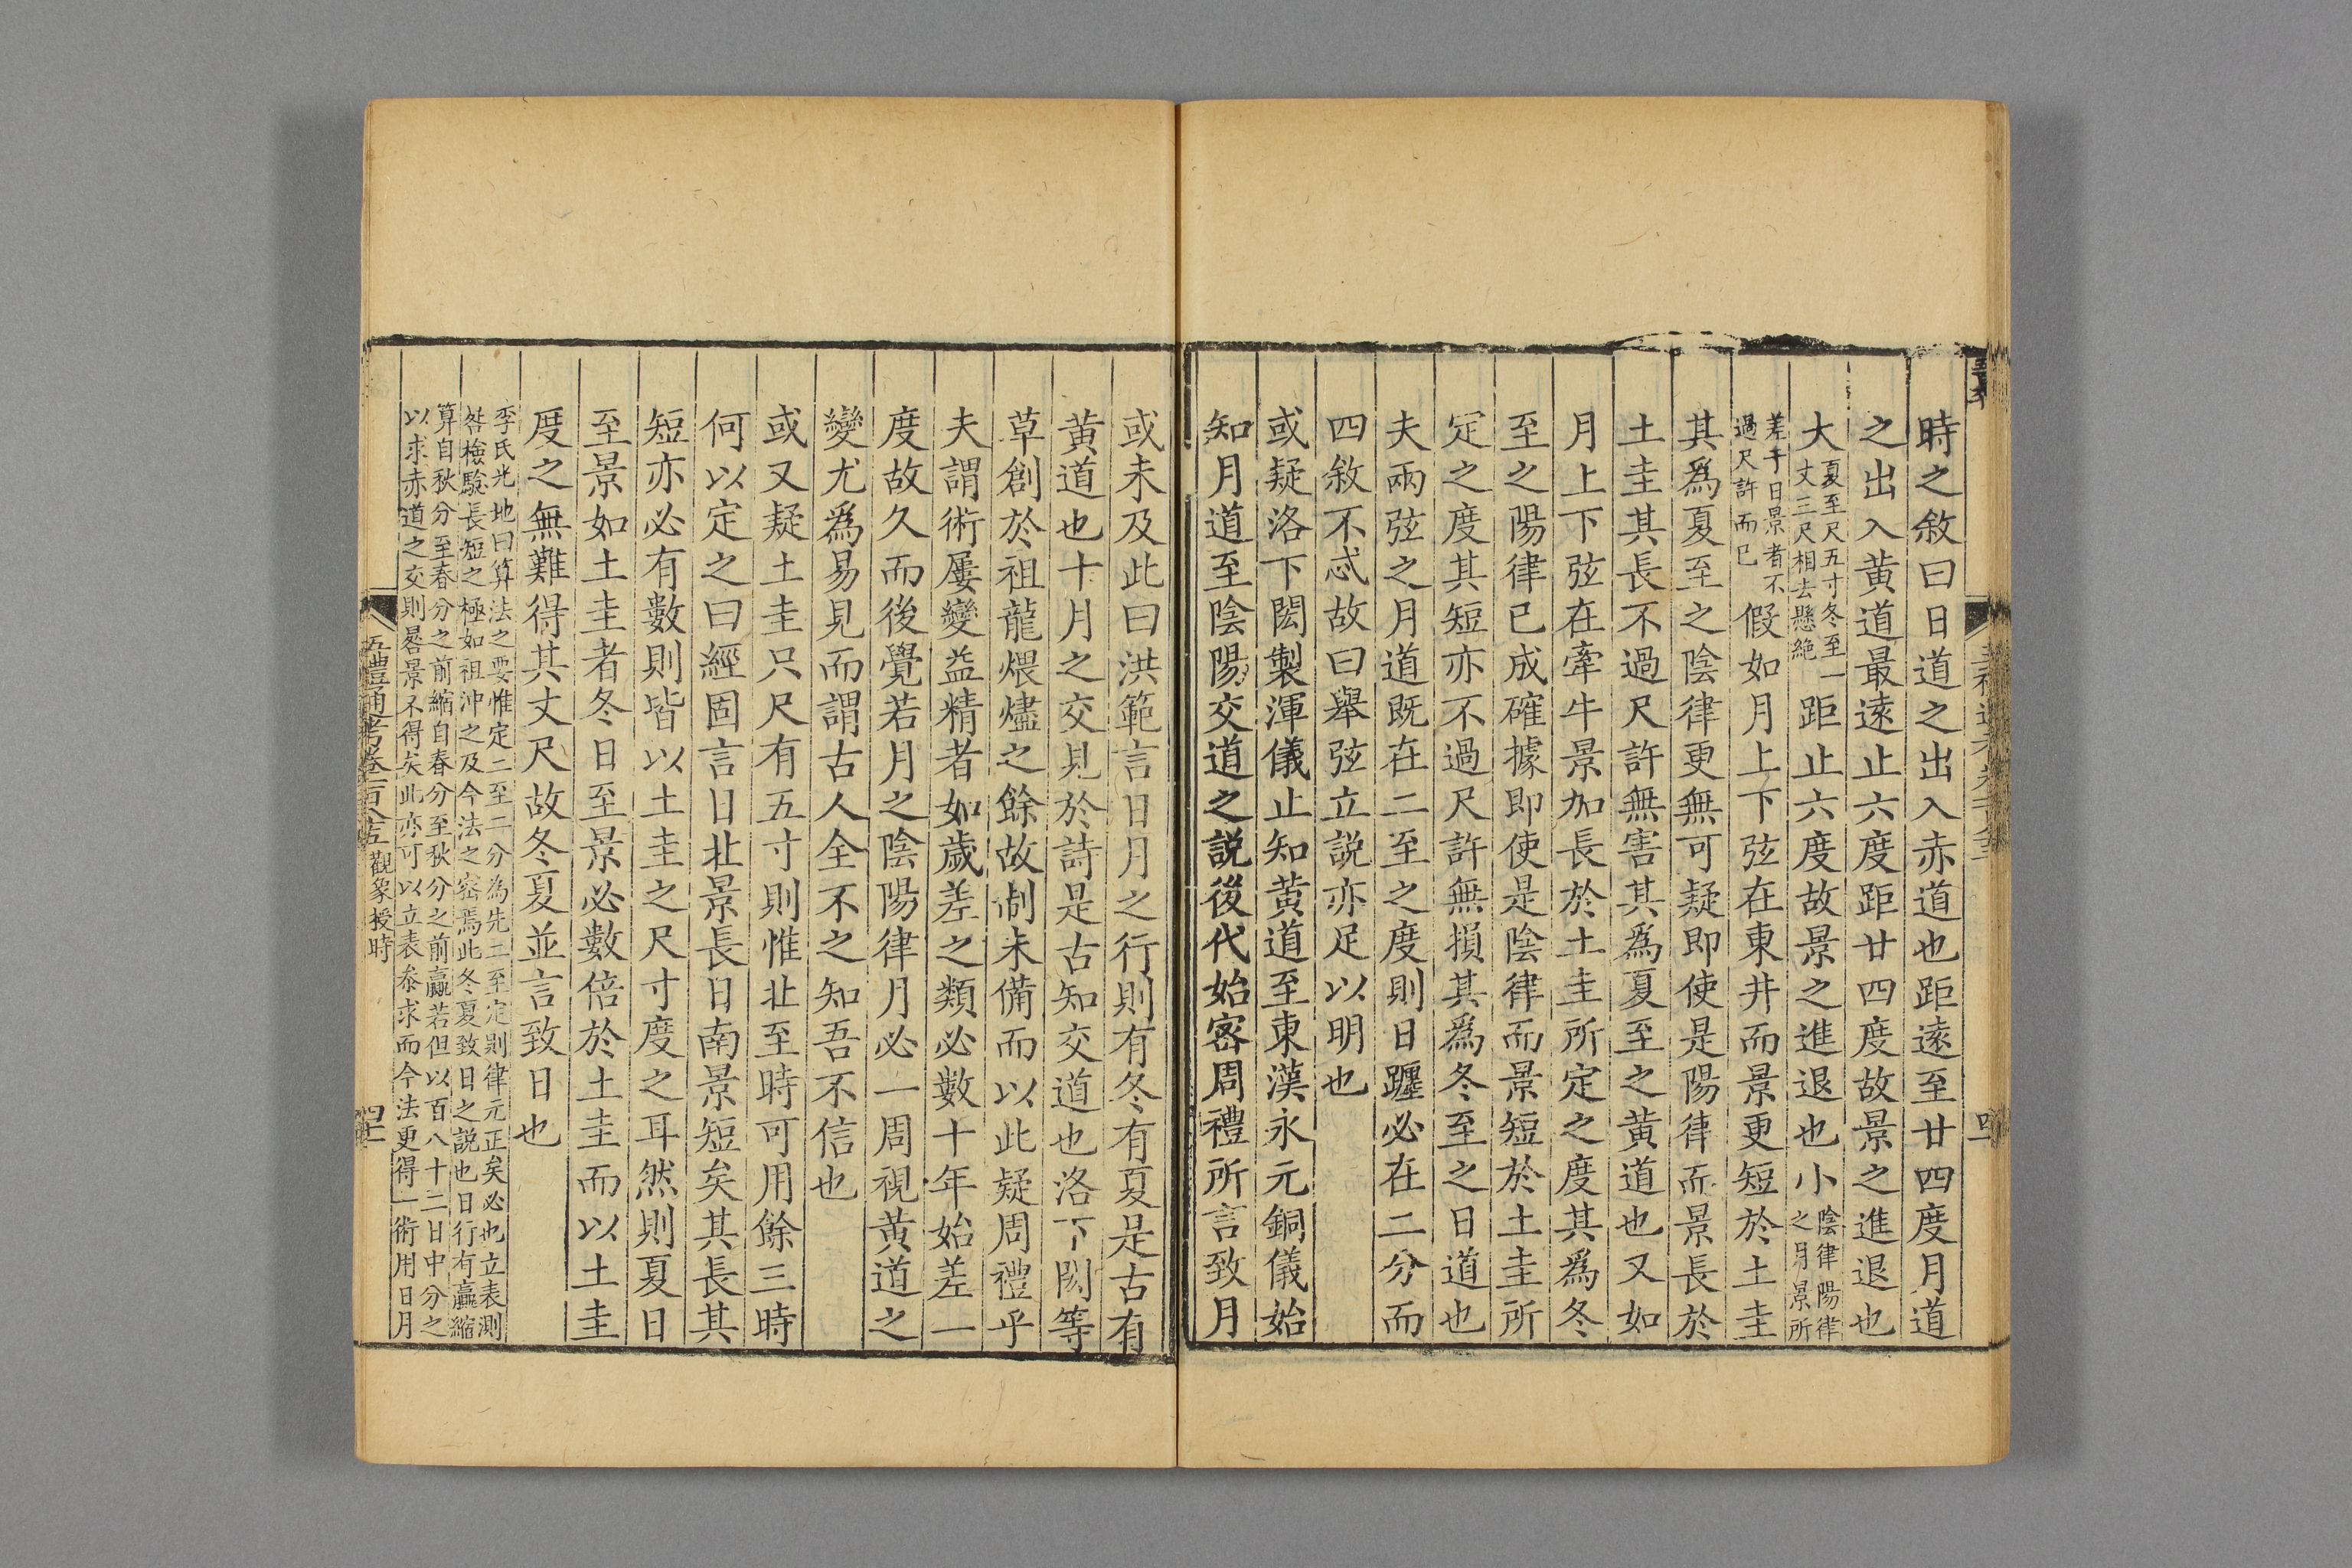 時之敘曰日道之出入赤道也距遠至廿四度月道
之出入黄道最遠止六度距廿四度故景之進退也
大夏至尺五寸冬至一丈三尺相去懸絶距止六度故景之進退也小陰律陽律之月景所
差于日景者不過尺許而已假如月上下弦在東井而景更短於土圭
其爲夏至之陰律更無可疑即使是陽律而景長於
土圭其長不過尺許無害其爲夏至之黄道也又如
月上下弦在牽牛景加長於土圭所定之度其爲冬
至之陽律已成確據即使是陰律而景短於土圭所
定之度其短亦不過尺許無損其爲冬至之日道也
夫兩弦之月道既在二至之度則日躔必在二分而
四敘不忒故曰舉弦立説亦足以明也
或疑洛下閎製渾儀止知黄道至東漢永元銅儀始
知月道至陰陽交道之説後代始密周禮所言致月
或未及此曰洪範言日月之行則有冬有夏是古有
黄道也十月之交見於詩是古知交道也洛下閎等
草創於祖龍煨燼之餘故制未備而以此疑周禮乎
夫謂術屢變益精者如歲差之類必數十年始差一
度故久而後覺若月之陰陽律月必一周視黄道之
變尤爲易見而謂古人全不之知吾不信也
或又疑土圭只尺有五寸則惟北至時可用餘三時
何以定之曰經固言日北景長日南景短矣其長其
短亦必有數則皆以土圭之尺寸度之耳然則夏日
至景如土圭者冬日至景必數倍於土圭而以土圭
度之無難得其丈尺故冬夏並言致日也
李氏光地曰算法之要惟定二至二分為先二至定則律元正矣必也立表測
晷檢驗長短之極如祖沖之及今法之密焉此冬夏致日之説也日行有贏縮
算自秋分至春分之前縮自春分至秋分之前贏若但以百八十二日中分之
以求赤道之交則晷景不得矣此亦可以立表叅求而今法更得一術用日月
五禮通考卷一百八十五 觀象授時